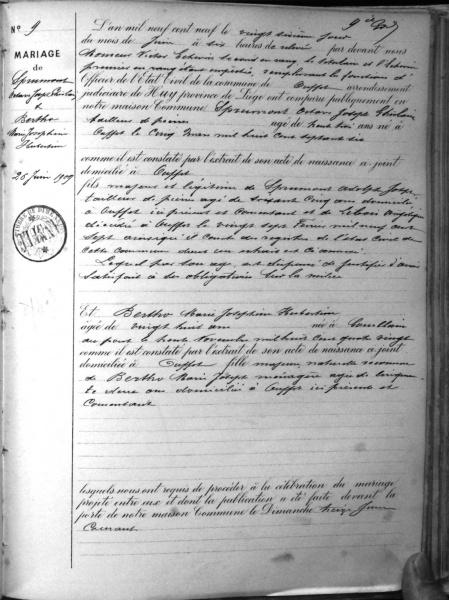 N° 9
MARIAGE
de
Sprumont
Octave Joseph Ghislain
&
Bertho
Marie Joséphine
Hubertine
26 Juin 1909
L'an mil neuf cent neuf le vingt sixième jour
du mois de Juin à six heures de relevée par devant nous
Officier de l'Etat Civil de la commune de Ouffet arrondissement
judiciaire de Huy, province de Liége ont comparu publiquement en
notre maison Commune Sprumont Octave Joseph Ghislain
tailleur de pierres âgé de trente ans né à
Ouffet le cinq mil huit cent septante
comme il est constaté par l'extrait de son acte de naissance ci-joint
domicilié à Ouffet
fils majeur et légitime de Sprumont Adolphe Joseph
tailleur de pierres âgé de soixante cinq ans domicilié
à Ouffet ici présent et consentant et de
décédée à Ouffet le vingt sept mil neuf cent
sept ainsi qu'il conste des registres de l'état civil de
cette commune
Lequel par son âge est dispensé de justifier d'avoir
satisfait à ses obligations sur la milice
Et Bertho Marie Joséphine Hubertine
âgée de vingt huit ans née à
le trente Novembre mil huit cent quatre vingt
comme il est constaté par l'extrait de son acte de naissance ci-joint
domiciliée à Ouffet fille majeure naturelle reconnue
de Bertho Marie Joseph ménagère âgée de cinquan-
te ans domiciliée à Ouffet ici présente et
consentante
lesquels nous ont requis de procéder à la célébration du mariage
projeté entre eux et dont la publication a été faite devant la
porte de notre maison Commune le Dimanche treize Juin
Courant